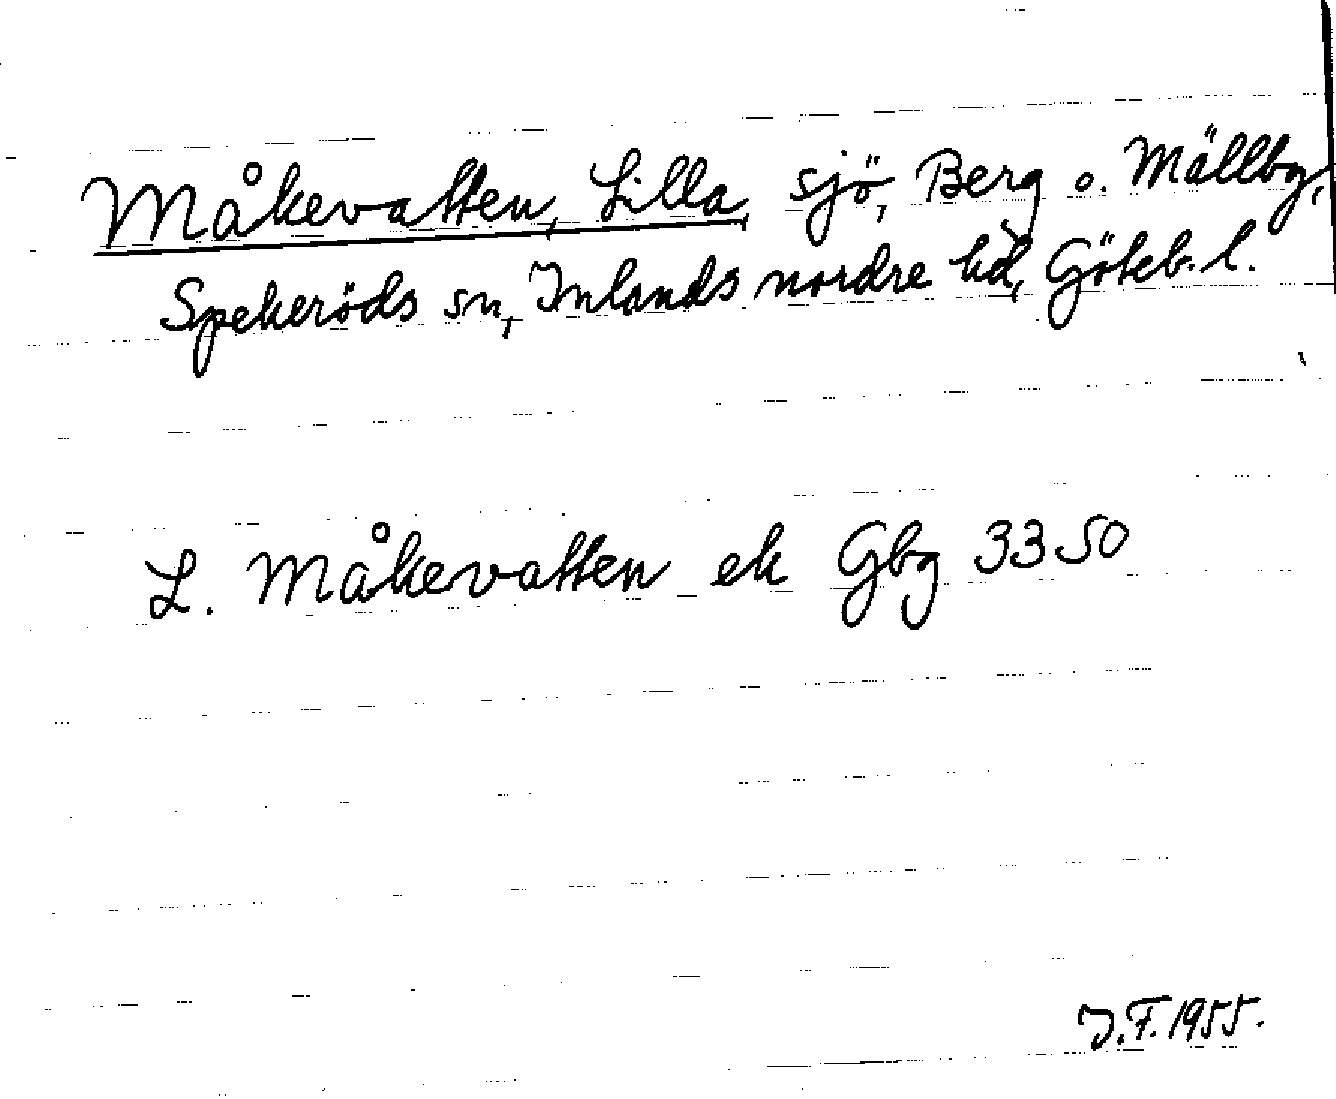 Måkevatten, Lilla, sjö, Berg o. Mällby,
Spekeröds sn, Inlands nordre hd, Göteb. l.
L. Måkevatten ek Gbg 3350
J.F. 1955.